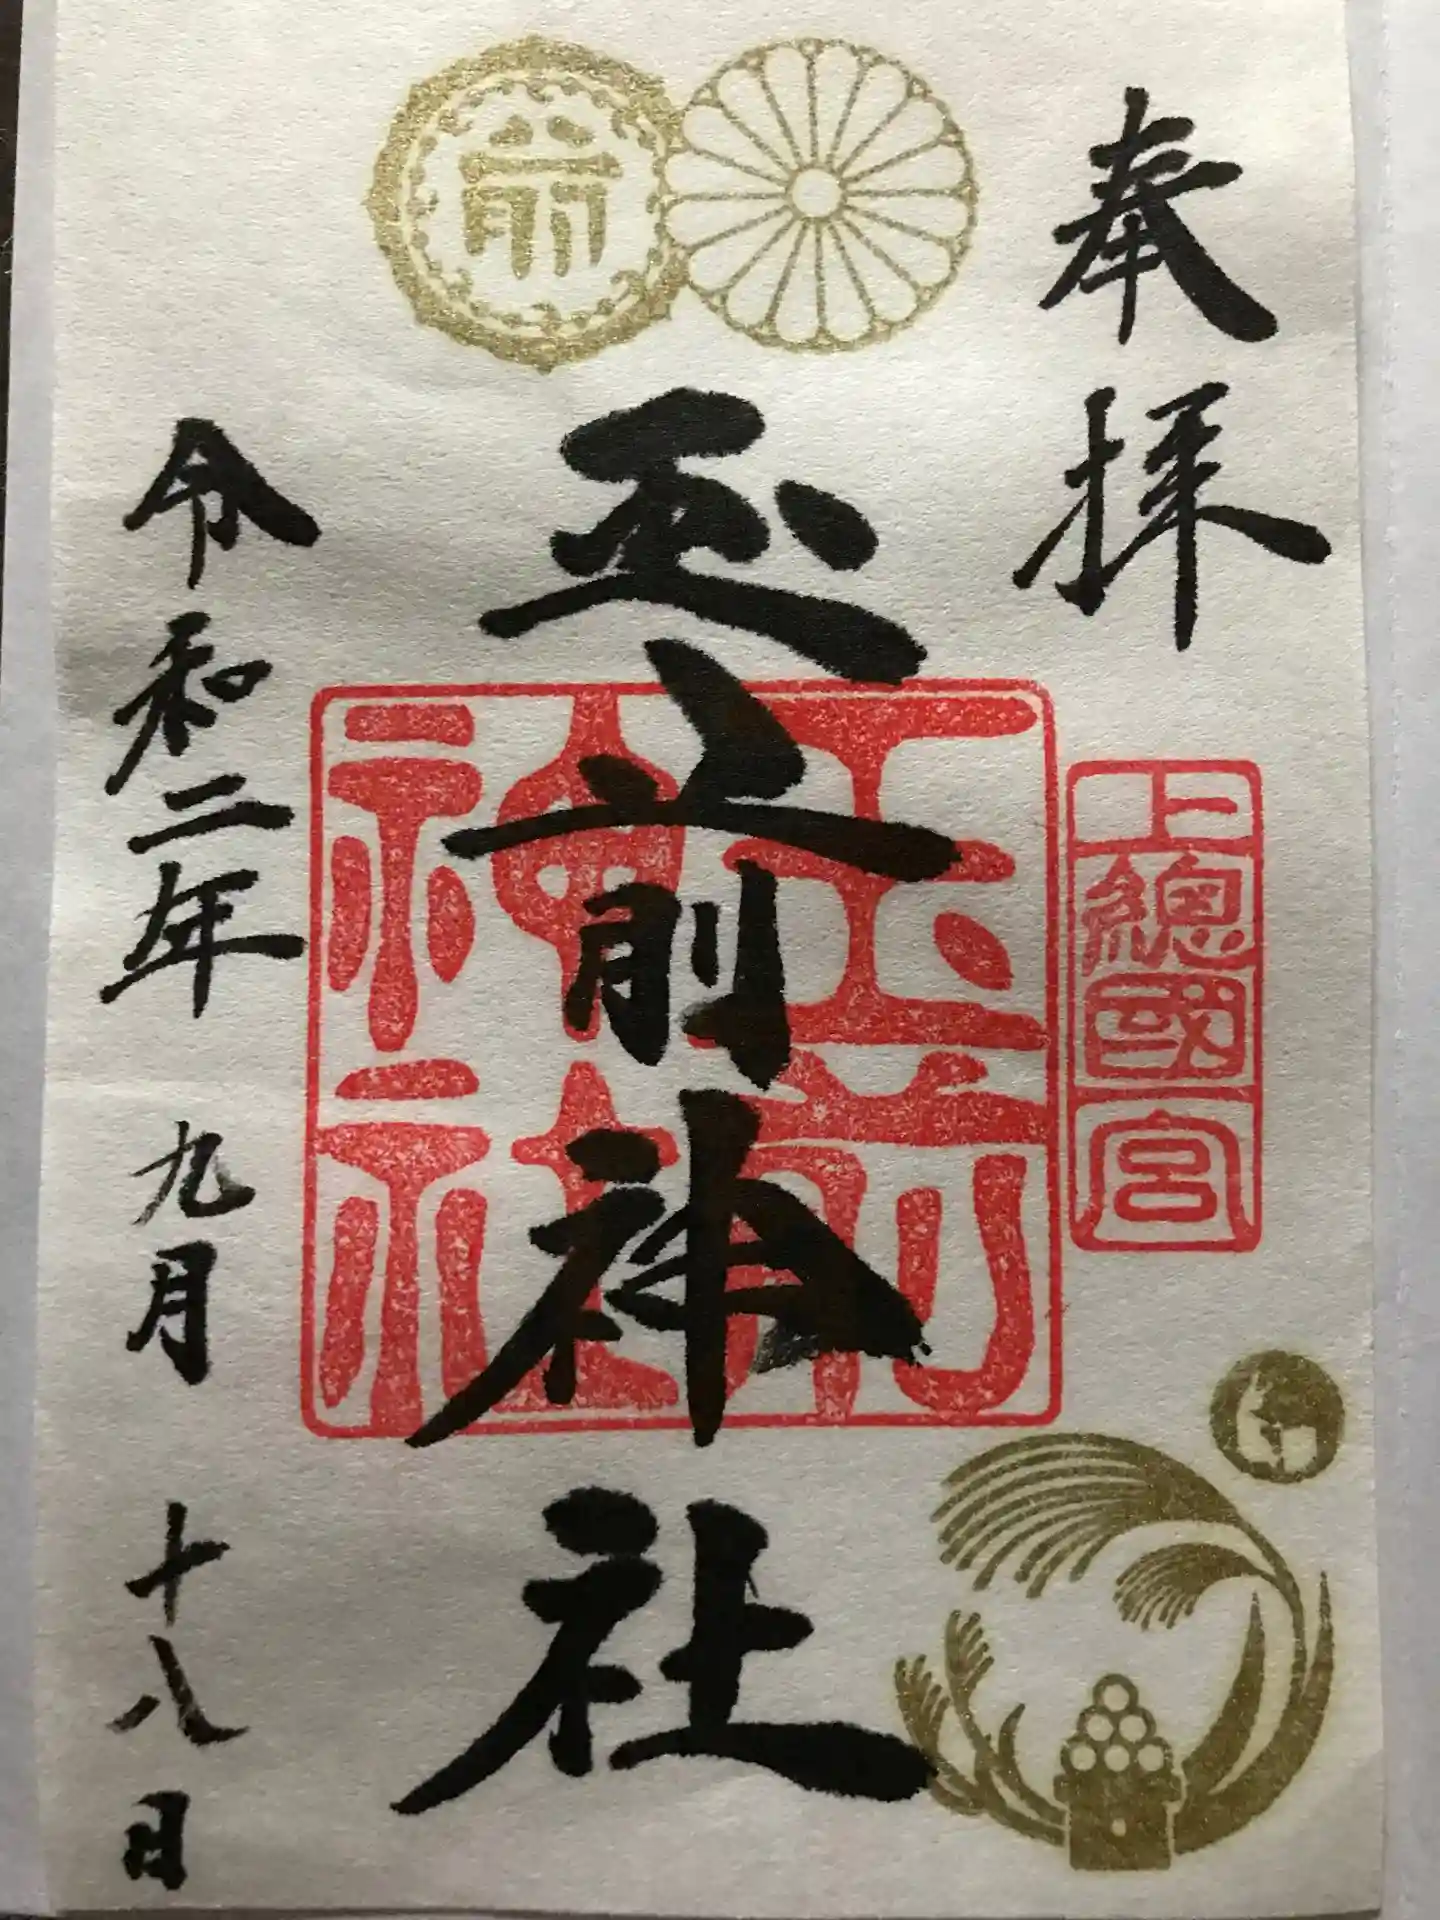 奉拝
上總國一宮
前
玉前神社
玉前
神社
令和二年 九月 十八日